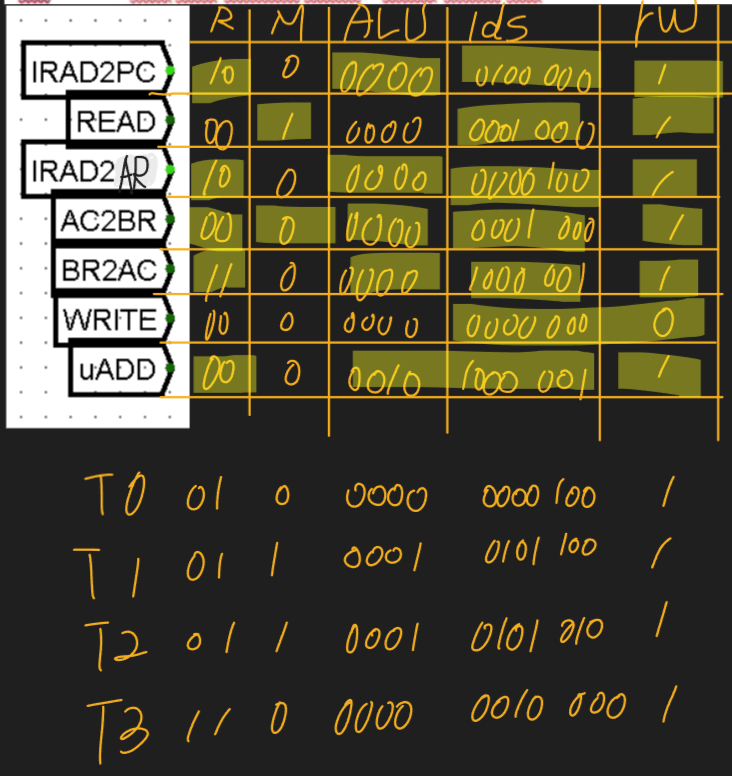 R M ALU lds rW
IRAD2PC 10 0 0000 0100 000 1
READ 00 1 0000 0001 000 1
IRAD2AR 10 0 0000 0000 100 1
AC2BR 00 0 0000 0001 000 1
BR2AC 11 0 0000 1000 001 1
WRITE 00 0 0000 0000 000 0
uADD 00 0 0010 1000 001 1
T0 01 0 0000 0000 100 1
T1 01 1 0001 0101 100 1
T2 01 1 0001 0101 010 1
T3 11 0 0000 0010 000 1